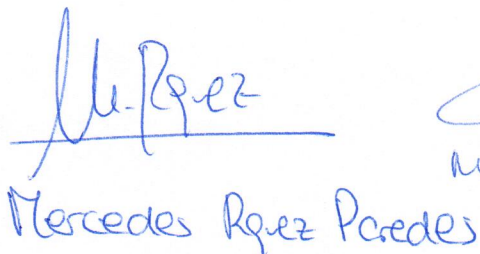 M. Rguez
Mercedes Rguez Paredes